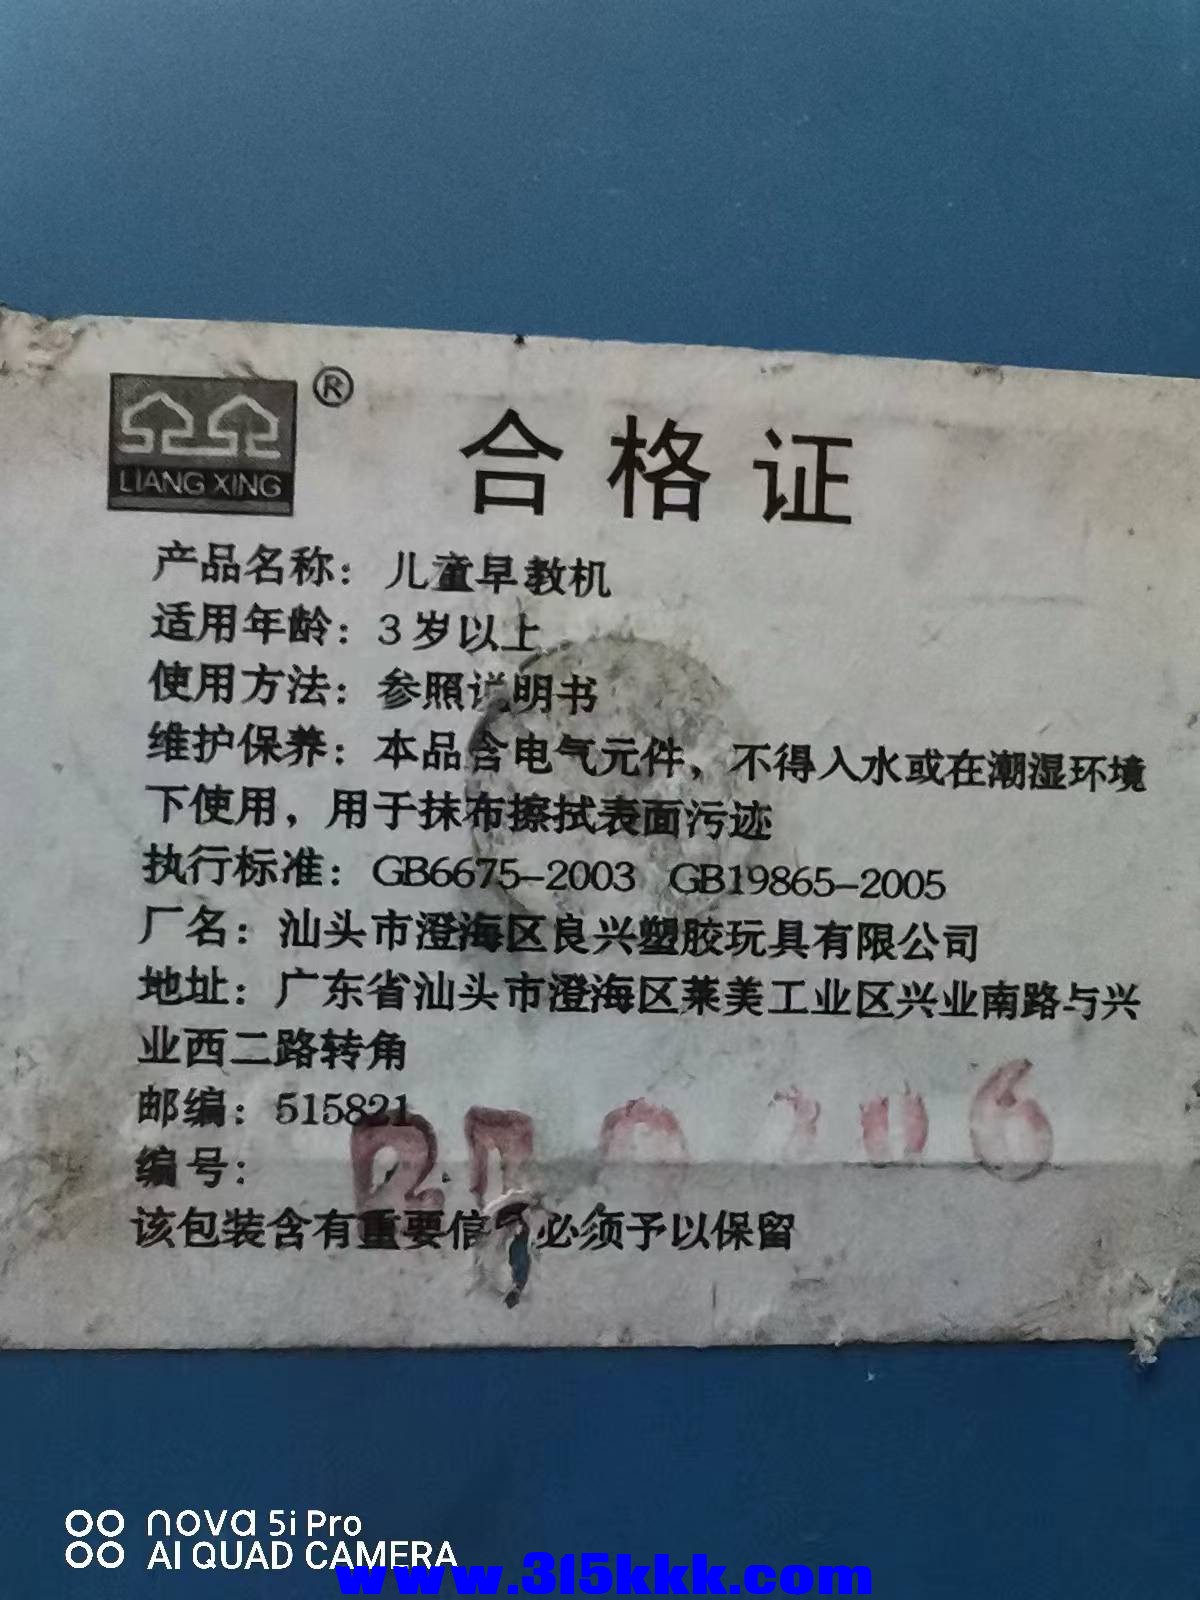 LIANG XING ®
合格证
产品名称：儿童早教机
适用年龄：3岁以上
使用方法：参照说明书
维护保养：本品含电气元件，不得入水或在潮湿环境
下使用，用于抹布擦拭表面污迹
执行标准：GB6675-2003 GB19865-2005
厂名：汕头市澄海区良兴塑胶玩具有限公司
地址：广东省汕头市澄海区莱美工业区兴业南路与兴
业西二路转角
邮编：515821
编号：
该包装含有重要信 必须予以保留
nova 5i Pro
AI QUAD CAMERA
www.315kkk.com